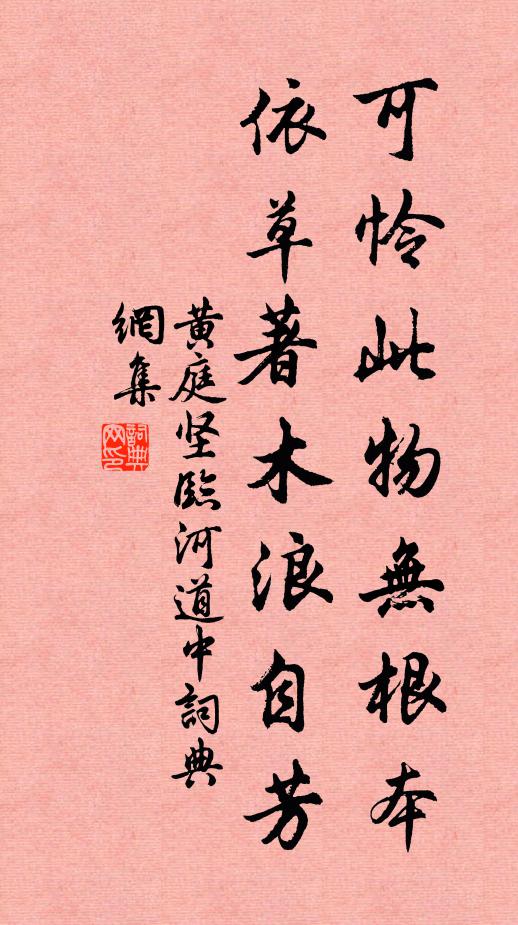 可怜此物無根本
依草著木浪自芳
黄庭坚臨河道中詞典
網集
詞典
网印